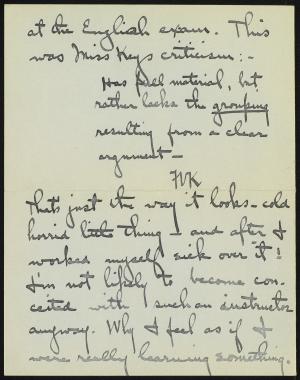 at the English exam. This
was Miss Keys criticism:-
Has full material, but
rather lacks the grouping
resulting from a clear
argument —
FVK
That's just the way it looks - cold
horrid little thing - and after I
worked myself sick over it!
I'm not likely to become con-
ceited with such an instructor
anyway. Why I feel as if I
were really learning something.